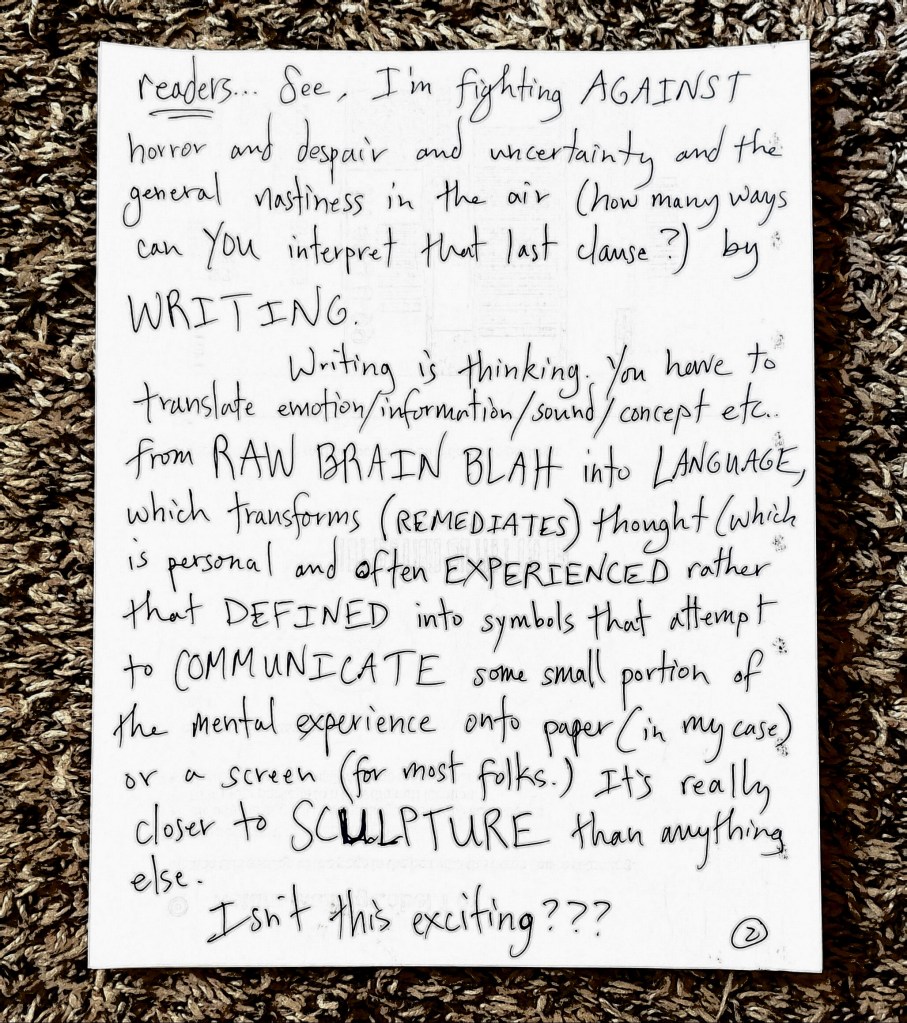 readers... See, I'm fighting AGAINST
horror and despair and uncertainty and the
general nastiness in the air (how many ways
can YOU interpret that last clause?) by
WRITING.
Writing is thinking. You have to
translate emotion/information/sound/concept etc..
from RAW BRAIN BLAH into LANGUAGE,
which transforms (REMEDIATES) thought (which
is personal and often EXPERIENCED rather
that DEFINED into symbols that attempt
to COMMUNICATE some small portion of
the mental experience onto paper (in my case)
or a screen (for most folks.) It's really
closer to SCULPTURE than anything
else.
Isn't this exciting???
2